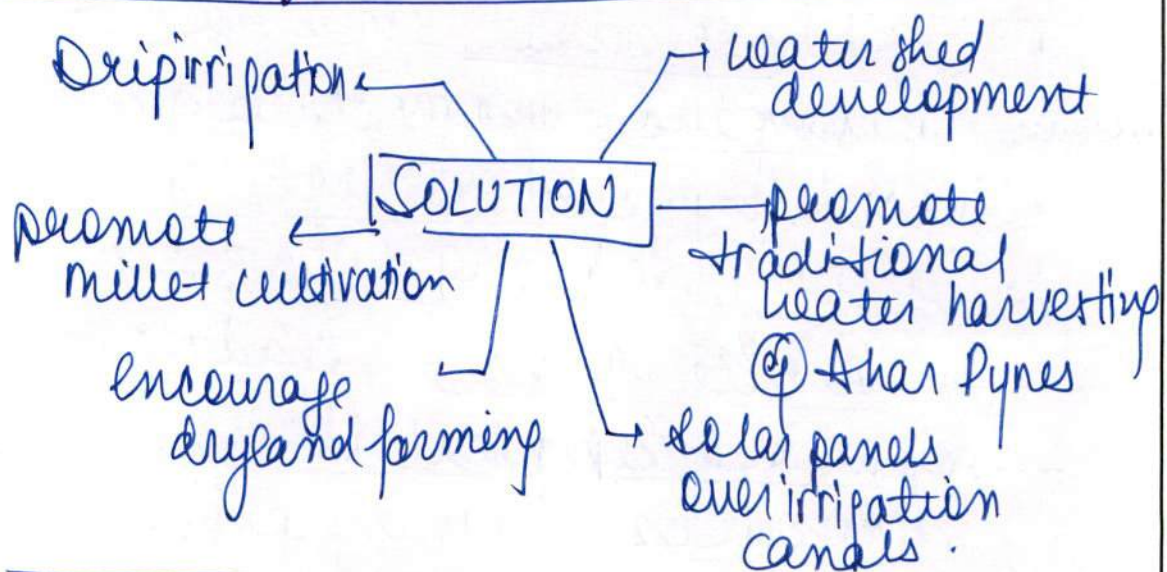 SOLUTION
Drip irrigation
watershed
development
promote
millet cultivation
promote
traditional
water harvesting
eg Ahar Pynes
encourage
dryland farming
solar panels
over irrigation
canals.